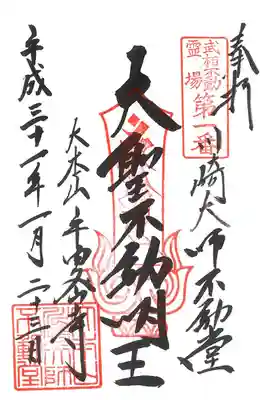 奉拝
武相不動
霊場
第一番
川崎大師不動堂
大聖不動明王
大本山 平間寺
平成三十一年一月二十三日